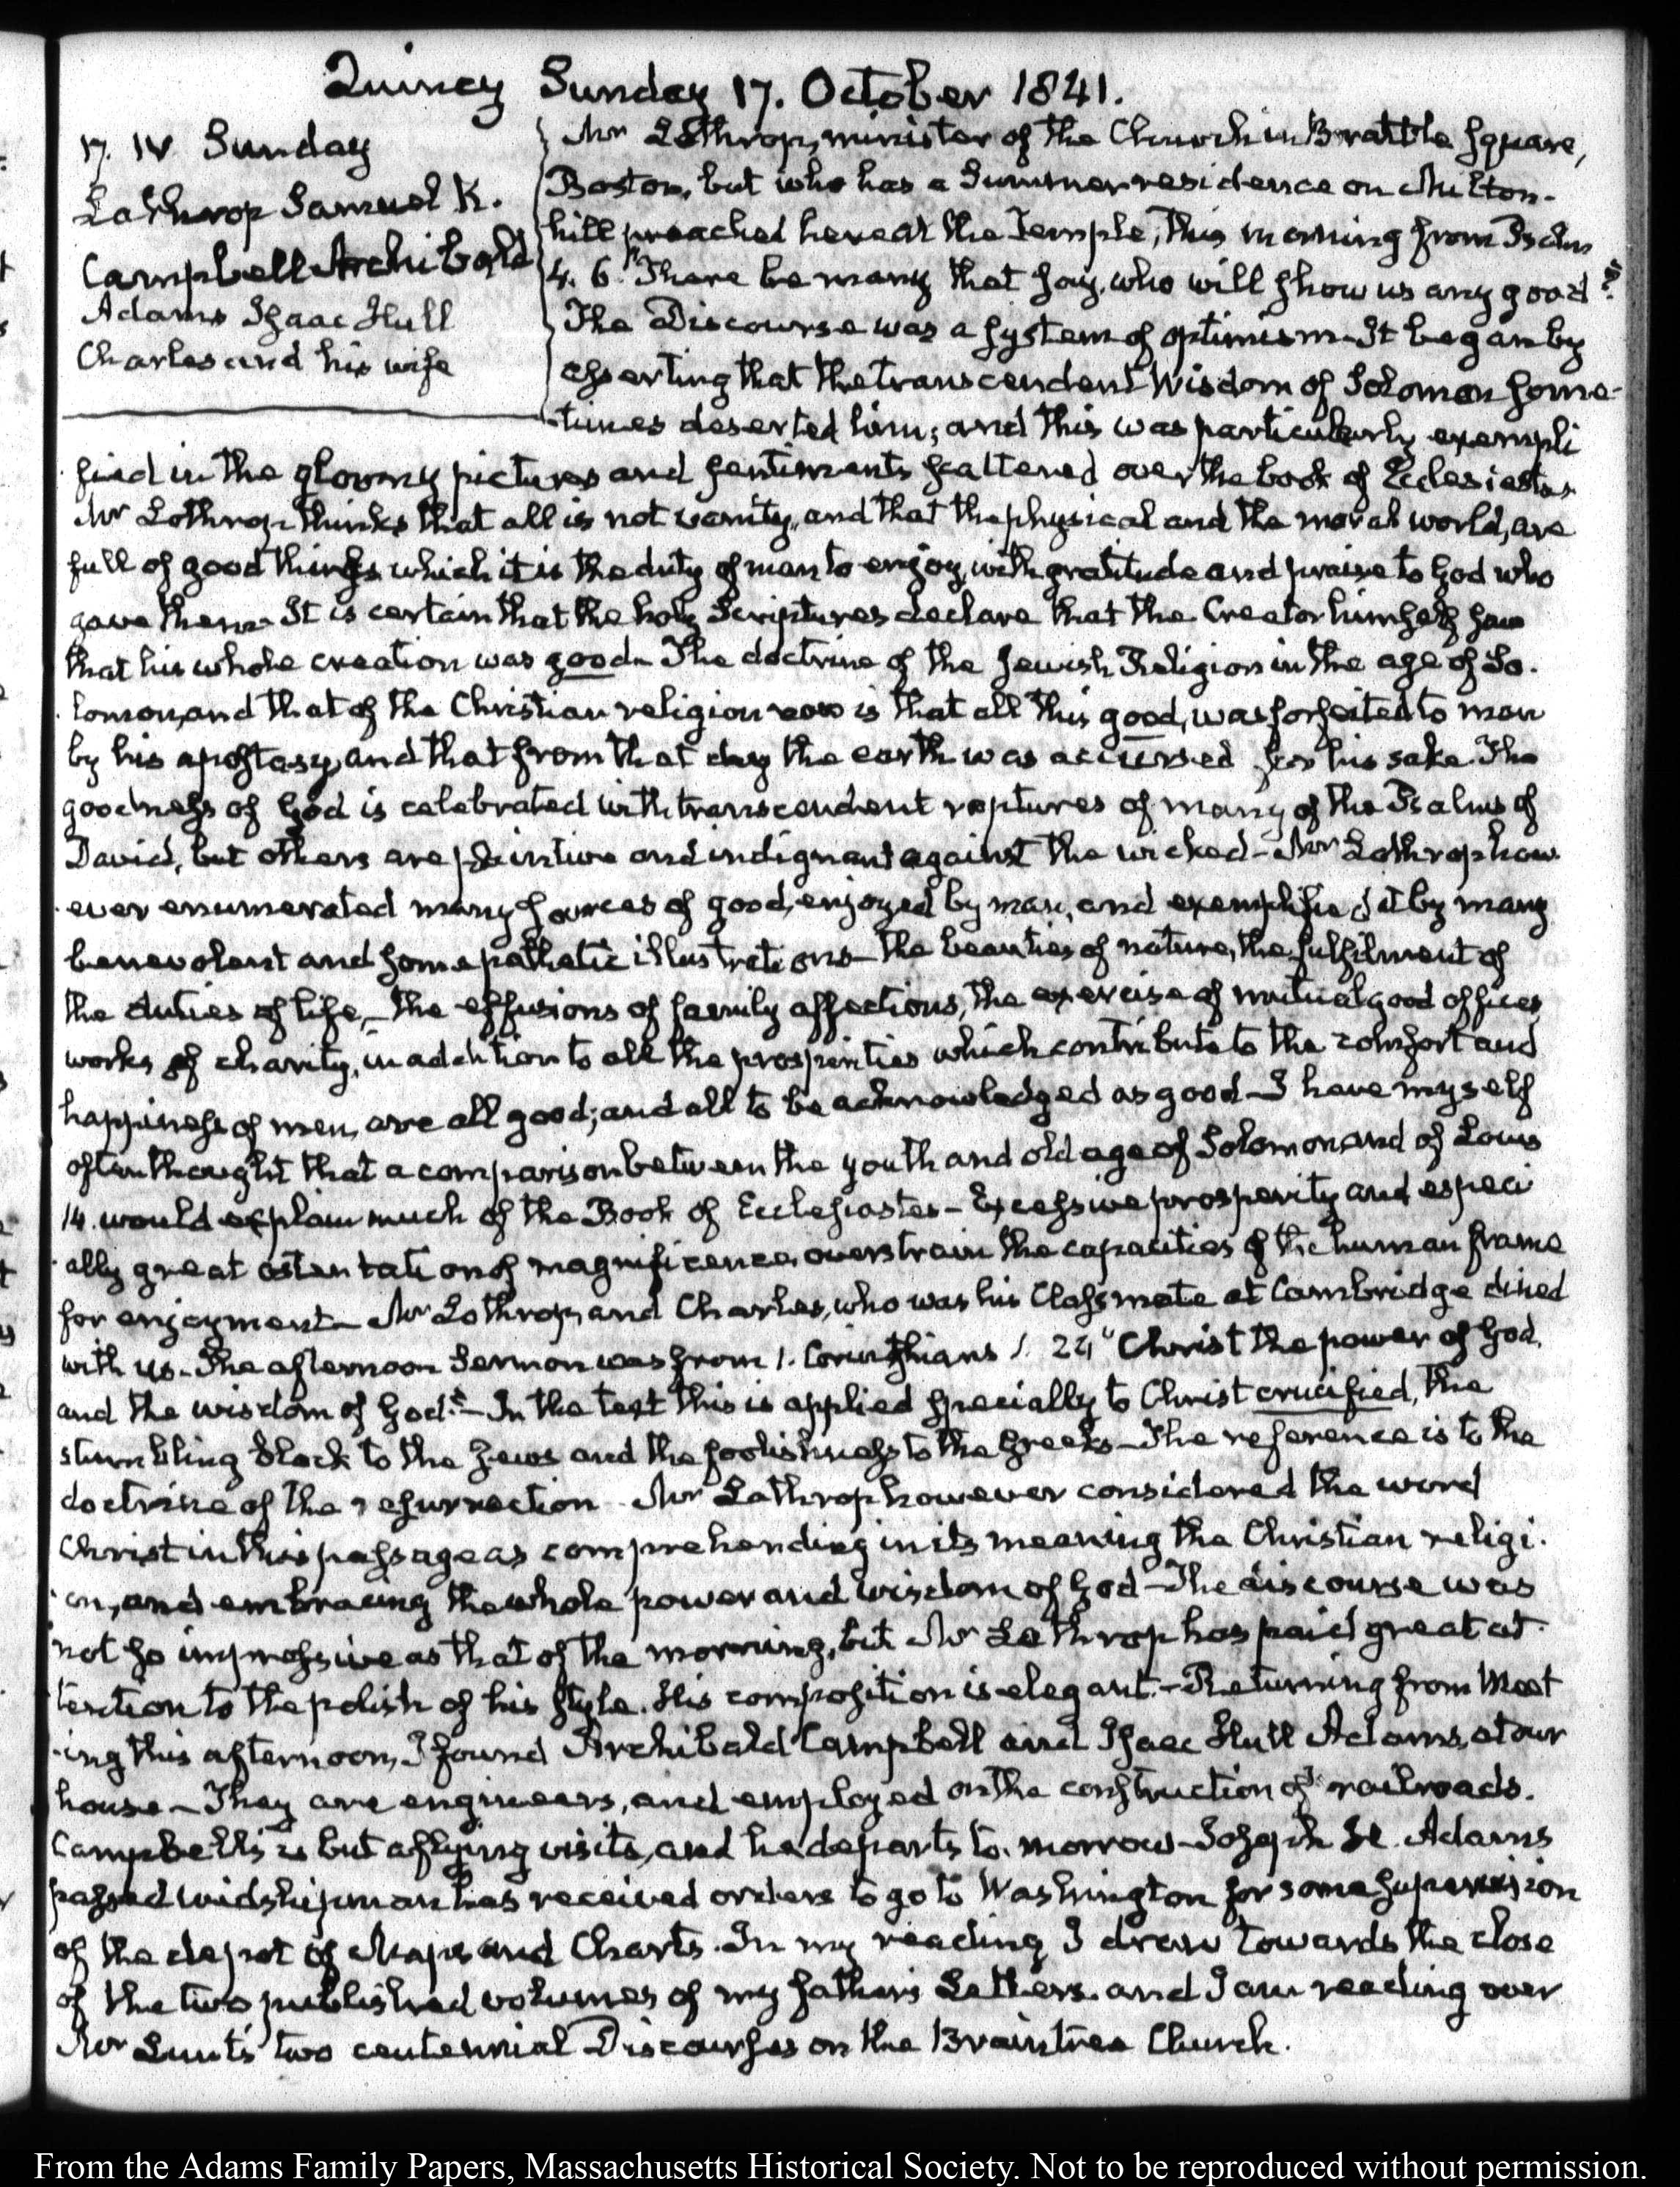 Quincy Sunday 17. October 1841.
17. IV Sunday
Lothrop Samuel K.
Campbell Archibald
Adams Isaac Hull
Charles and his wife
Mr Lothrop, minister of the Church in Brattle Square,
Boston, but who has a Summer residence on Milton-
hill preached here at the Temple, this morning from Psalm
4. 6. "There be many that say, who will show us any good?"
The Discourse was a system of optimism—It began by
asserting that the transcendent Wisdom of Solomon some-
times deserted him; and this was particularly exempli
fied in the gloomy pictures and sentiments scattered over the book of Ecclesiastes
Mr Lothrop thinks that all is not vanity, and that the physical and the moral world, are
full of good things which it is the duty of man to enjoy, with gratitude and praise to God who
gave them—It is certain that the holy Scriptures declare that the Creator himself saw
that his whole creation was good—The doctrine of the Jewish Religion in the age of So-
lomon, and that of the Christian religion now is that all this good, was forfeited to man
by his apostasy, and that from that day the earth was accursed for his sake. The
goodness of God is celebrated with transcendent raptures of many of the Psalms of
David, but others are plaintive and indignant against the wicked—Mr Lothrop how
ever enumerated many sources of good, enjoyed by man, and exemplified it by many
benevolent and some pathetic illustrations—the beauties of nature, the fulfilment of
the duties of life,—the effusions of family affections, the exercise of mutual good offices
works of charity, in addition to all the prosperities which contribute to the comfort and
happiness of men, are all good; and all to be acknowledged as good—I have myself
often thought that a comparison between the youth and old age of Solomon and of Louis
14. would explain much of the Book of Ecclesiastes—Excessive prosperity and especi
ally great ostentation of magnificence overstrain the capacities of the human frame
for enjoyment—Mr Lothrop, and Charles, who was his Classmate at Cambridge dined
with us—The afternoon Sermon was from 1. Corinthians 1. 24 "Christ the power of God,
and the wisdom of God."—In the text this is applied specially to Christ crucified, the
stumbling block to the Jews and the foolishness to the Greeks—The reference is to the
doctrine of the resurrection—Mr Lothrop however considered the word
Christ in this passage as comprehending in its meaning the Christian religi-
on, and embracing the whole power and wisdom of God—The discourse was
not so impressive as that of the morning, but Mr Lothrop has paid great at-
tention to the polish of his style. His composition is elegant.—Returning from Meet
ing this afternoon, I found Archibald Campbell and Isaac Hull Adams, at our
house—They are engineers, and employed on the construction of railroads.
Campbell's is but a flying visit, and he departs to-morrow—Joseph H. Adams
passed midshipman has received orders to go to Washington for some supervision
of the depot of Maps and Charts. In my reading I draw towards the close
of the two published volumes of my father's Letters. and I am reading over
Mr Lunt's two centennial Discourses on the Braintree Church.
From the Adams Family Papers, Massachusetts Historical Society. Not to be reproduced without permission.